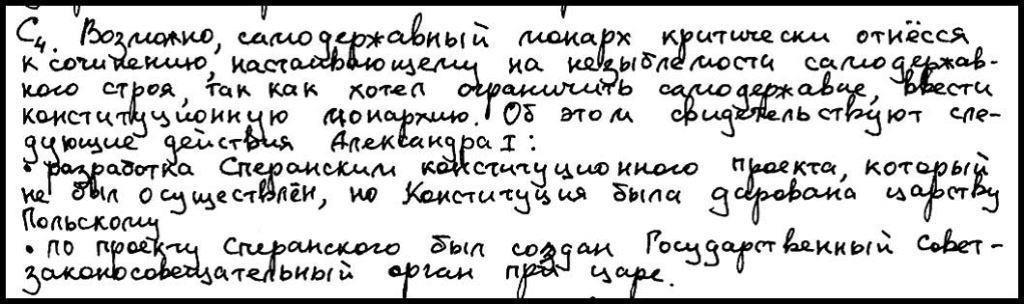 С4. Возможно, самодержавный монарх критически отнёсся
к сочинению, настаивающему на незыблемости самодержав-
ного строя, так как хотел ограничить самодержавие, ввести
конституционную монархию. Об этом свидетельствуют сле-
дующие действия Александра I:
• разработка Сперанским конституционного проекта, который
не был осуществлён, но Конституция была дарована царству
Польскому
• по проекту Сперанского был создан Государственный Совет-
законосовещательный орган при царе.